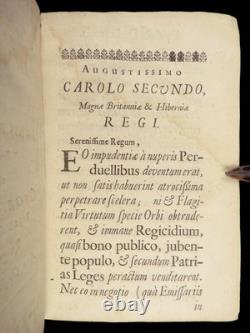 AUGUSTISSIMO
CAROLO SECUNDO,
Magnæ Britanniæ & Hiberniæ
REGI.
Serenissime Regum,
EO impudentiæ à nuperis Per-
duellibus deventum erat,
ut non satis habuerint atrocissima
perpetrare scelera; ni & Flagi-
tia Virtutum specie Orbi obtrude-
rent, & immane Regicidium,
quasi bono publico, juben-
te populo, & secundum Patri-
as Leges peractum venditarent.
Nec eo in negotio (quà Emissariis
in
hamtramck-box.com